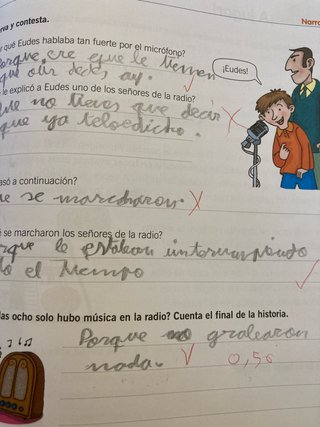 Narra
rva y contesta.
qué Eudes hablaba tan fuerte por el micrófono?
Porque cre que le
que desde
¡Eudes!
le explicó a Eudes uno de los señores de la radio?
que no tienes que decir
que ya telo
asó a continuación?
ue se marcharon.
se marcharon los señores de la radio?
rque le estaban
do el tiempo
las ocho solo hubo música en la radio? Cuenta el final de la historia.
Porque no grabaron
nada. 0,50